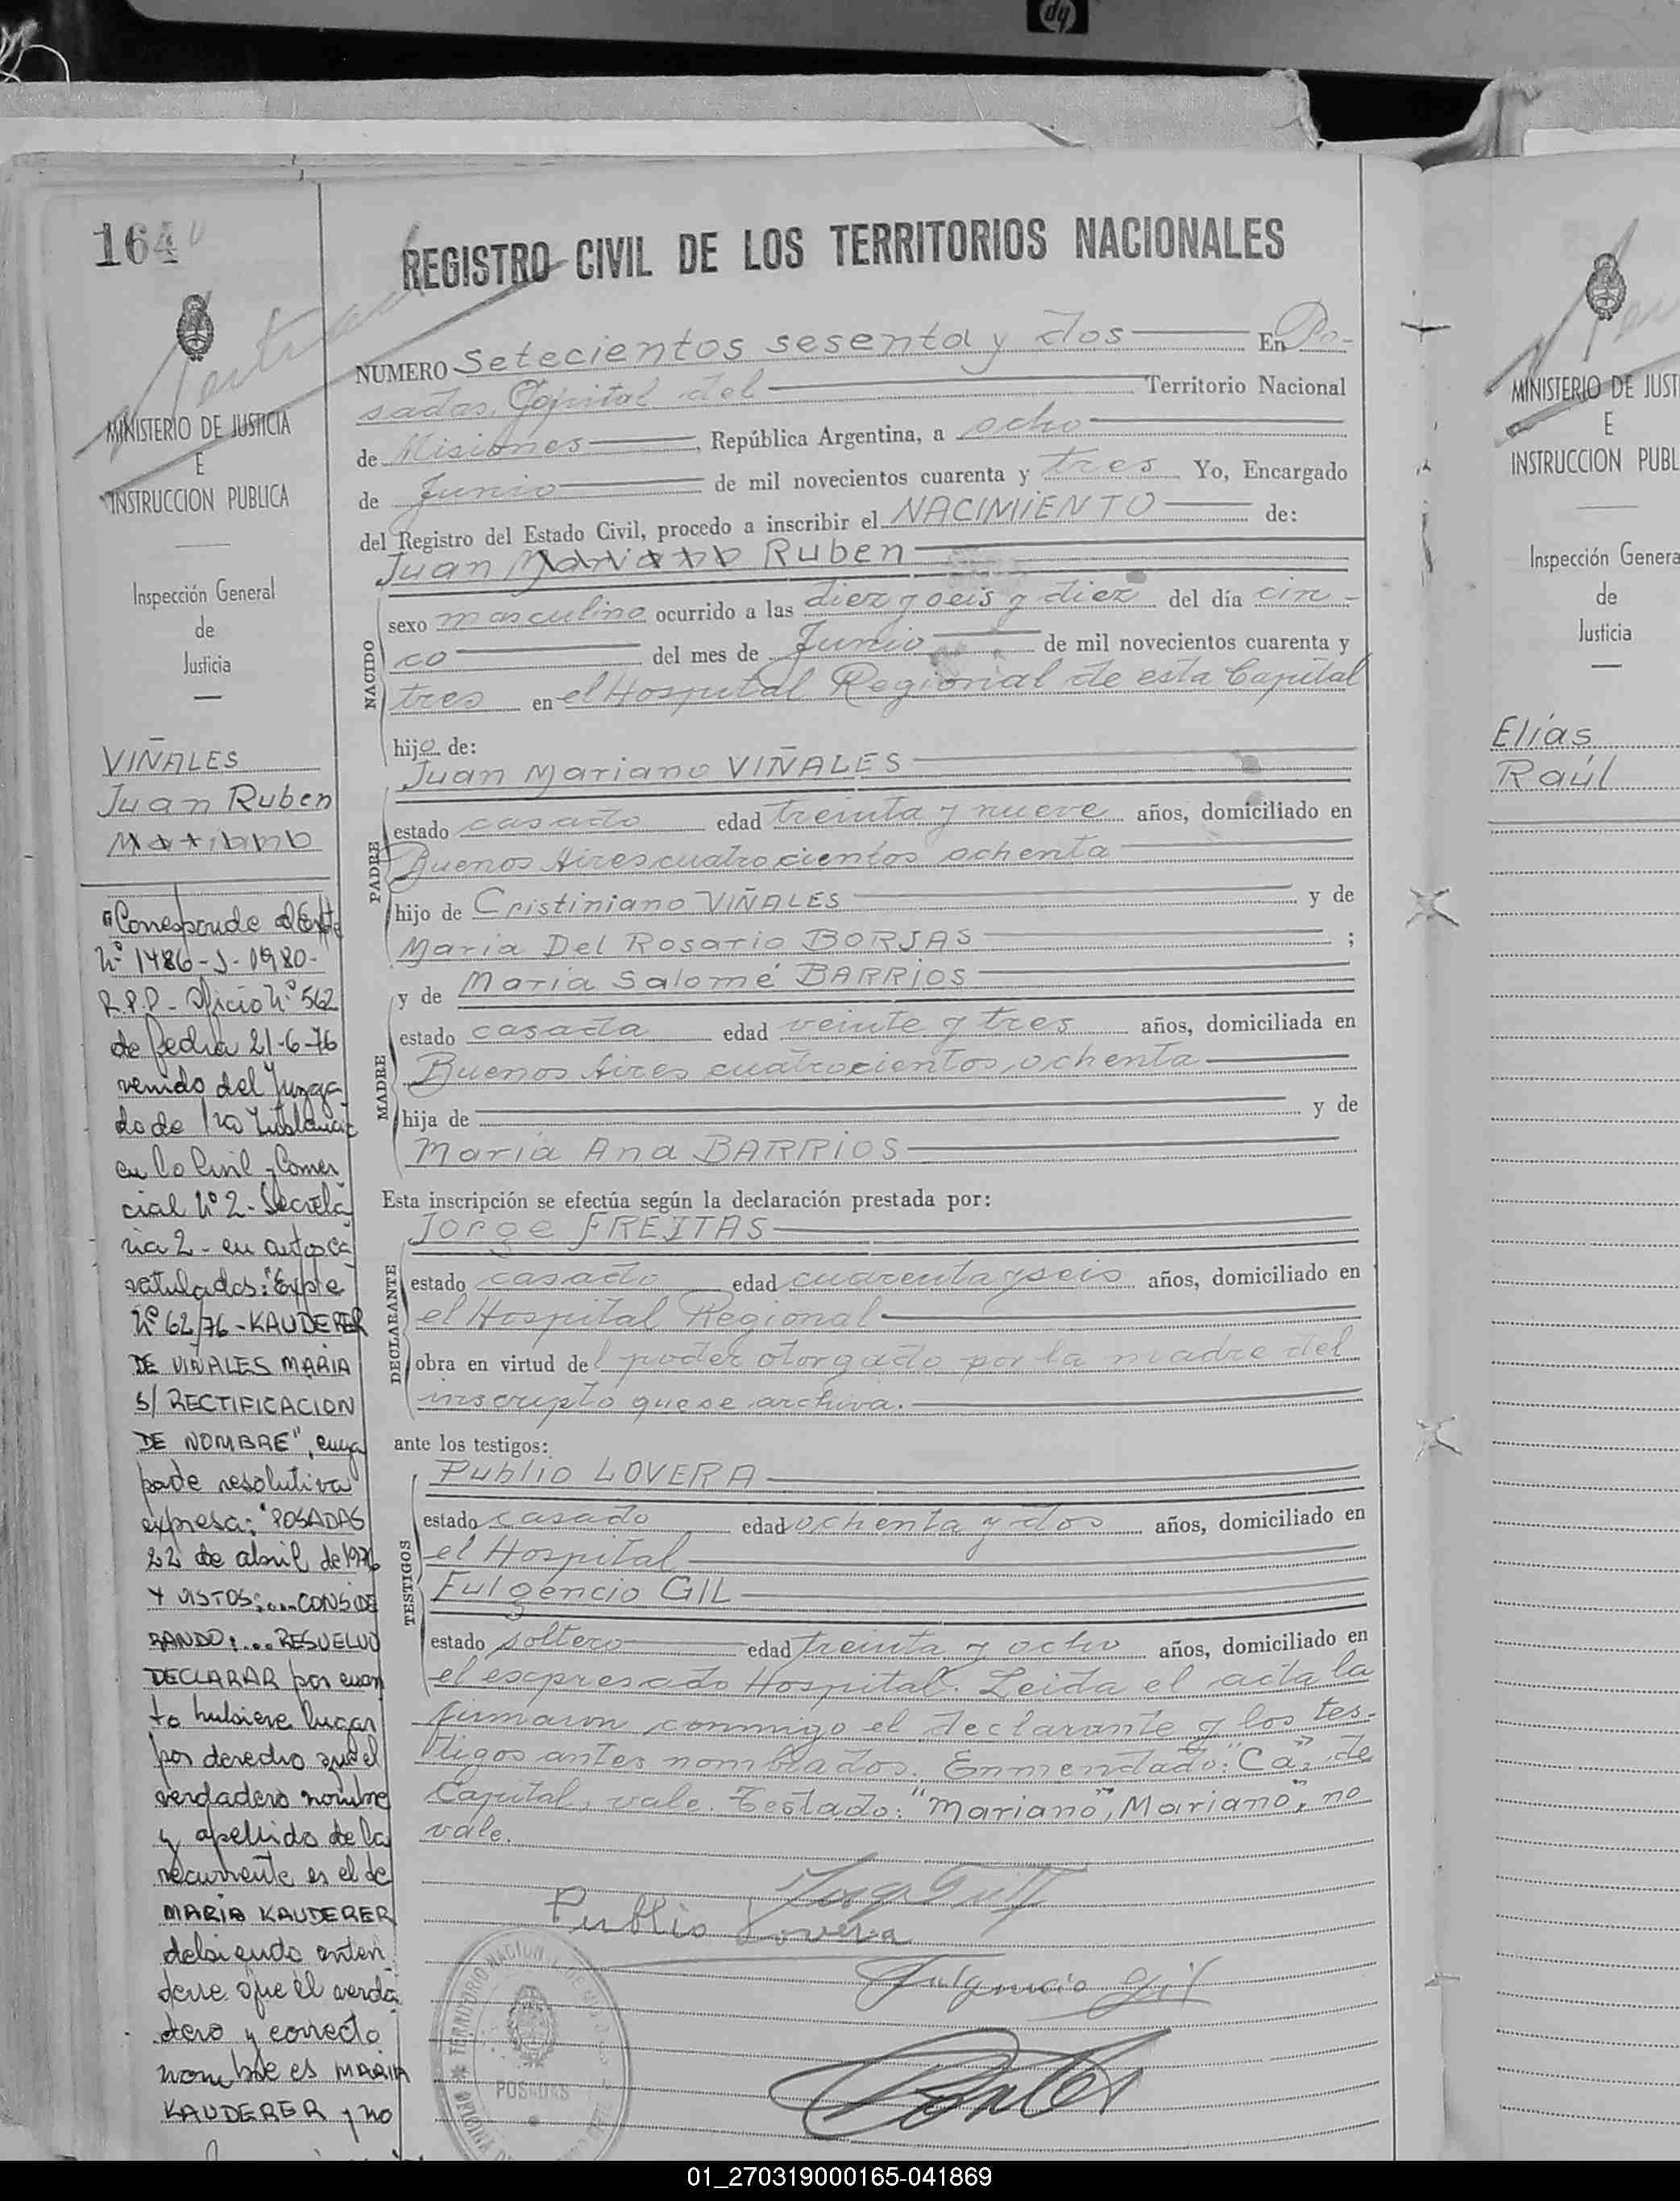 hp
164
MINISTERIO DE JUSTICIA
E
INSTRUCCION PUBLICA
Inspección General
de
Justicia
VIÑALES
Juan Ruben
Mariano
"Corresponde al Expte
Nº 1486-J-1980-
R.P.P- Oficio Nº 562
de fecha 21-6-76
venido del Juzga
do de 1ra Instancia
en lo Civil y Comer
cial Nº 2- Secreta
ria 2- en autos ca
ratulados: "Expte
Nº 62/76 - KAUDERER
DE VIÑALES MARIA
S/ RECTIFICACION
DE NOMBRE", cuya
parte resolutiva
expresa: "POSADAS
22 de abril de 1976
Y VISTOS:...CONSIDE
RANDO:...RESUELVO
DECLARAR por cuan
to hubiere lugar
por derecho que el
verdadero nombre
y apellido de la
recurrente es el de
MARIA KAUDERER
debiendo enten
derse que el verda
dero y correcto
nombre es MARIA
KAUDERER y no
REGISTRO CIVIL DE LOS TERRITORIOS NACIONALES
NUMERO Setecientos sesenta y dos En Po-
sadas, Capital del Territorio Nacional
de Misiones, República Argentina, a ocho
de Junio de mil novecientos cuarenta y tres Yo, Encargado
del Registro del Estado Civil, procedo a inscribir el NACIMIENTO de:
Juan Mariano Ruben
NACIDO
sexo masculino ocurrido a las diez y seis y diez del día cin-
co del mes de Junio de mil novecientos cuarenta y
tres en el Hospital Regional de esta Capital
hijo de:
Juan Mariano VIÑALES
PADRE
estado casado edad treinta y nueve años, domiciliado en
Buenos Aires cuatrocientos ochenta
hijo de Cristiniano VIÑALES y de
Maria Del Rosario BORJAS ;
y de Maria Salomé BARRIOS
MADRE
estado casada edad veinte y tres años, domiciliada en
Buenos Aires cuatrocientos ochenta
hija de y de
Maria Ana BARRIOS
Esta inscripción se efectúa según la declaración prestada por:
Jorge FREITAS
DECLARANTE
estado casado edad cuarenta y seis años, domiciliado en
el Hospital Regional
obra en virtud del poder otorgado por la madre del
inscripto que se archiva.
ante los testigos:
Publio LOVERA
TESTIGOS
estado casado edad ochenta y dos años, domiciliado en
el Hospital
Fulgencio GIL
estado soltero edad treinta y ocho años, domiciliado en
el expresado Hospital. Leida el acta la
firmaron conmigo el declarante y los tes-
tigos antes nombrados. Enmendado: "Ca" de
Capital, vale. Testado: "Mariano", Mariano", no
vale.
Publio Lovera
Fulgencio Gil
POSADAS
MINISTERIO DE JUSTI
E
INSTRUCCION PUBL
Inspección Genera
de
Justicia
Elías
Raúl
01_270319000165-041869